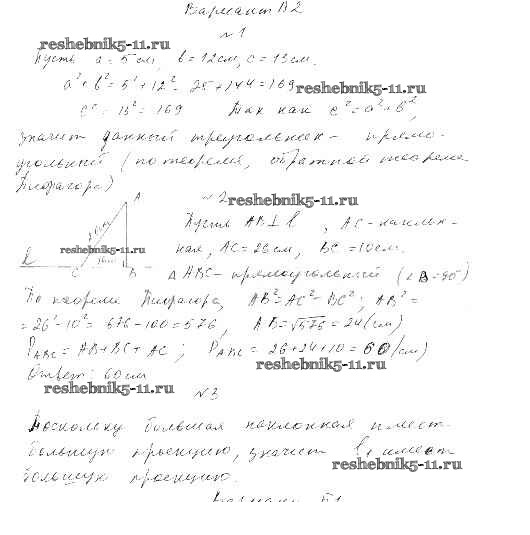 Вариант В2
№1
reshebnik5-11.ru
Пусть a = 5 см, b = 12 см, c = 13 см.
a² + b² = 5² + 12² = 25 + 144 = 169
reshebnik5-11.ru
c² = 13² = 169 Так как c² = a² + b²,
значит данный треугольник - прямо-
угольный (по теореме, обратной теореме
Пифагора)
№2
reshebnik5-11.ru
A
Пусть AB ⊥ l, AC - наклон-
reshebnik5-11.ru
ная, AC = 26 см, BC = 10 см.
C B
ΔABC - прямоугольный (∠B = 90°)
По теореме Пифагора, AB² = AC² - BC²; AB² =
= 26² - 10² = 676 - 100 = 576, AB = √576 = 24 (см)
P ABC = AB + BC + AC; P ABC = 26 + 24 + 10 = 60 (см)
reshebnik5-11.ru
Ответ: 60 см
reshebnik5-11.ru
№3
Поскольку большая наклонная имеет
большую проекцию, значит l₁ имеет
reshebnik5-11.ru
большую проекцию.